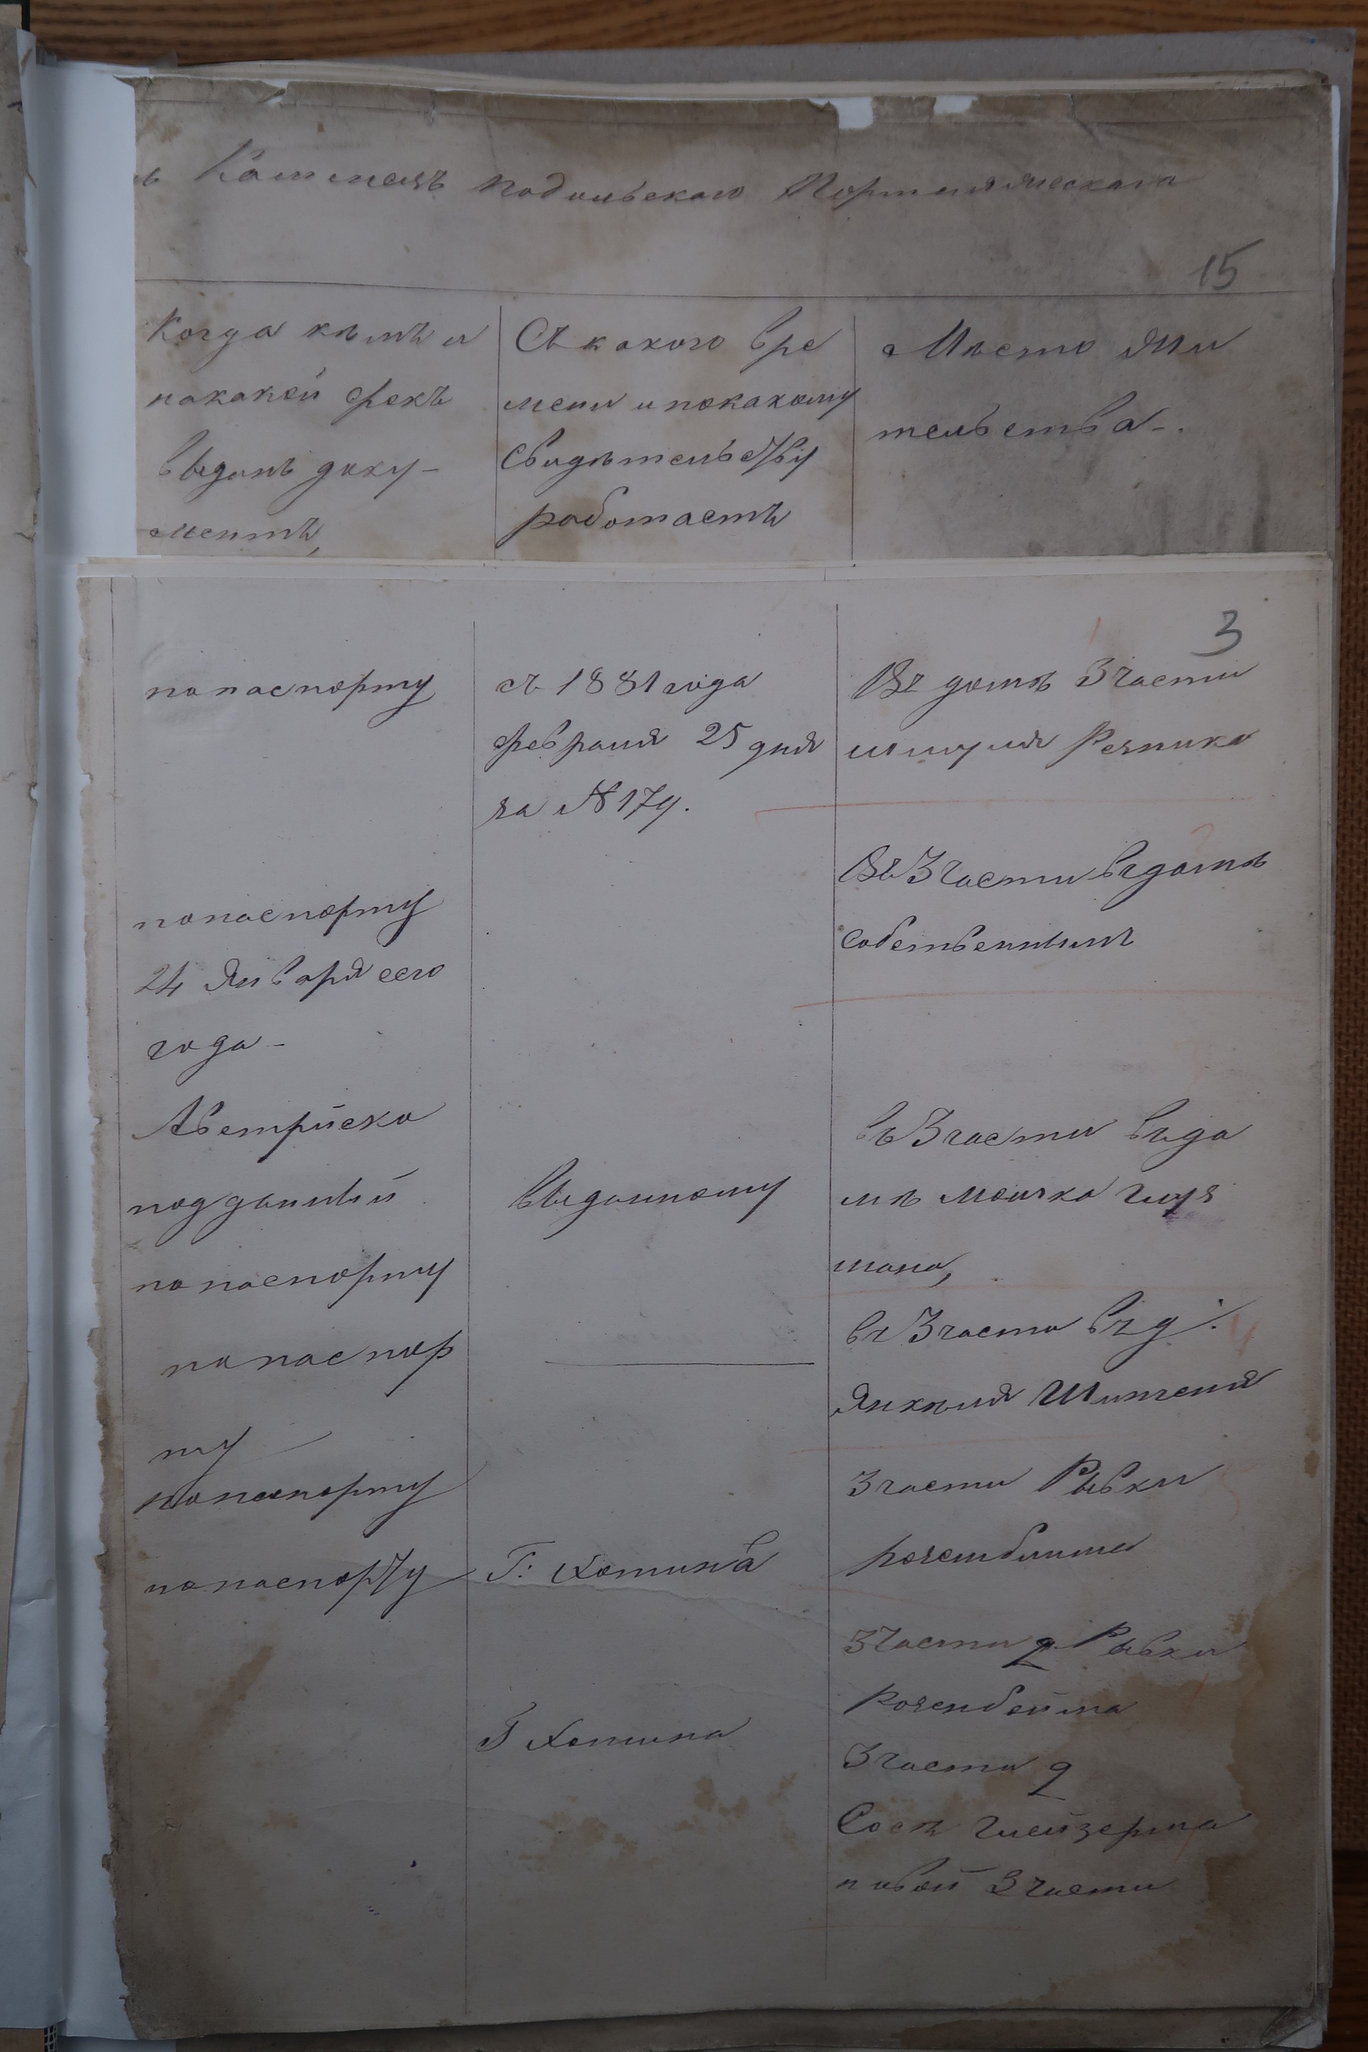 Каменецъ Подольскаго Портняжескаго
15
Когда кѣмъ и
накакой срокъ
выданъ доку-
ментъ,
Съ какого вре
мени и покакому
Свидѣтельству
работаетъ
Мѣсто жи
тельства.
3
попаспорту
съ 1881 года
февраля 25 дня
за № 179.
Въ домѣ 3 части
шмуля Резника
попаспорту
24 Января сего
года
Въ 3 части въ домѣ
собственнымъ
Австрійско
подданный
выданному
въ 3 части въ до
мѣ мошка глуз
мана,
попаспорту
попаспор
ту
въ 3 части въ д:
Янкеля
попаспорту
3 части Рывки
розенблита
попаспорту
Г: Хотина
3 части д Рывки
Г Хотина
3 части д
Сосѣ глейзерма
новой 3 части